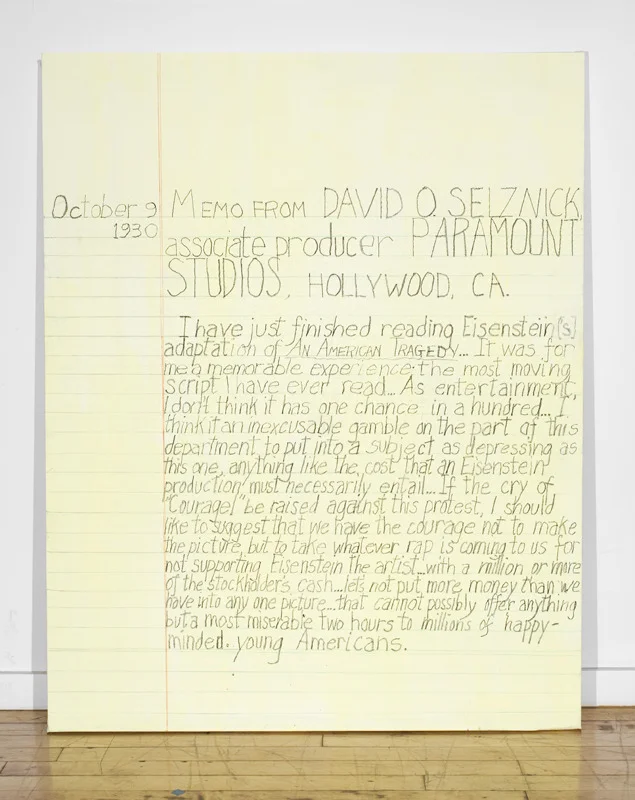 October 9 MEMO FROM DAVID O. SELZNICK,
1930 associate producer PARAMOUNT
STUDIOS, HOLLYWOOD, CA.
I have just finished reading Eisenstein[s]
adaptation of AN AMERICAN TRAGEDY... It was for
me a memorable experience; the most moving
script I have ever read... As entertainment,
I don't think it has one chance in a hundred... I
think it an inexcusable gamble on the part of this
department to put into a subject as depressing as
this one, anything like the cost that an Eisenstein
production must necessarily entail... If the cry of
"Courage!" be raised against this protest, I should
like to suggest that we have the courage not to make
the picture, but to take whatever rap is coming to us for
not supporting Eisenstein the artist...with a million or more
of the stockholder's cash...lets not put more money than we
have into any one picture...that cannot possibly offer anything
but a most miserable two hours to millions of happy-
minded. young Americans.